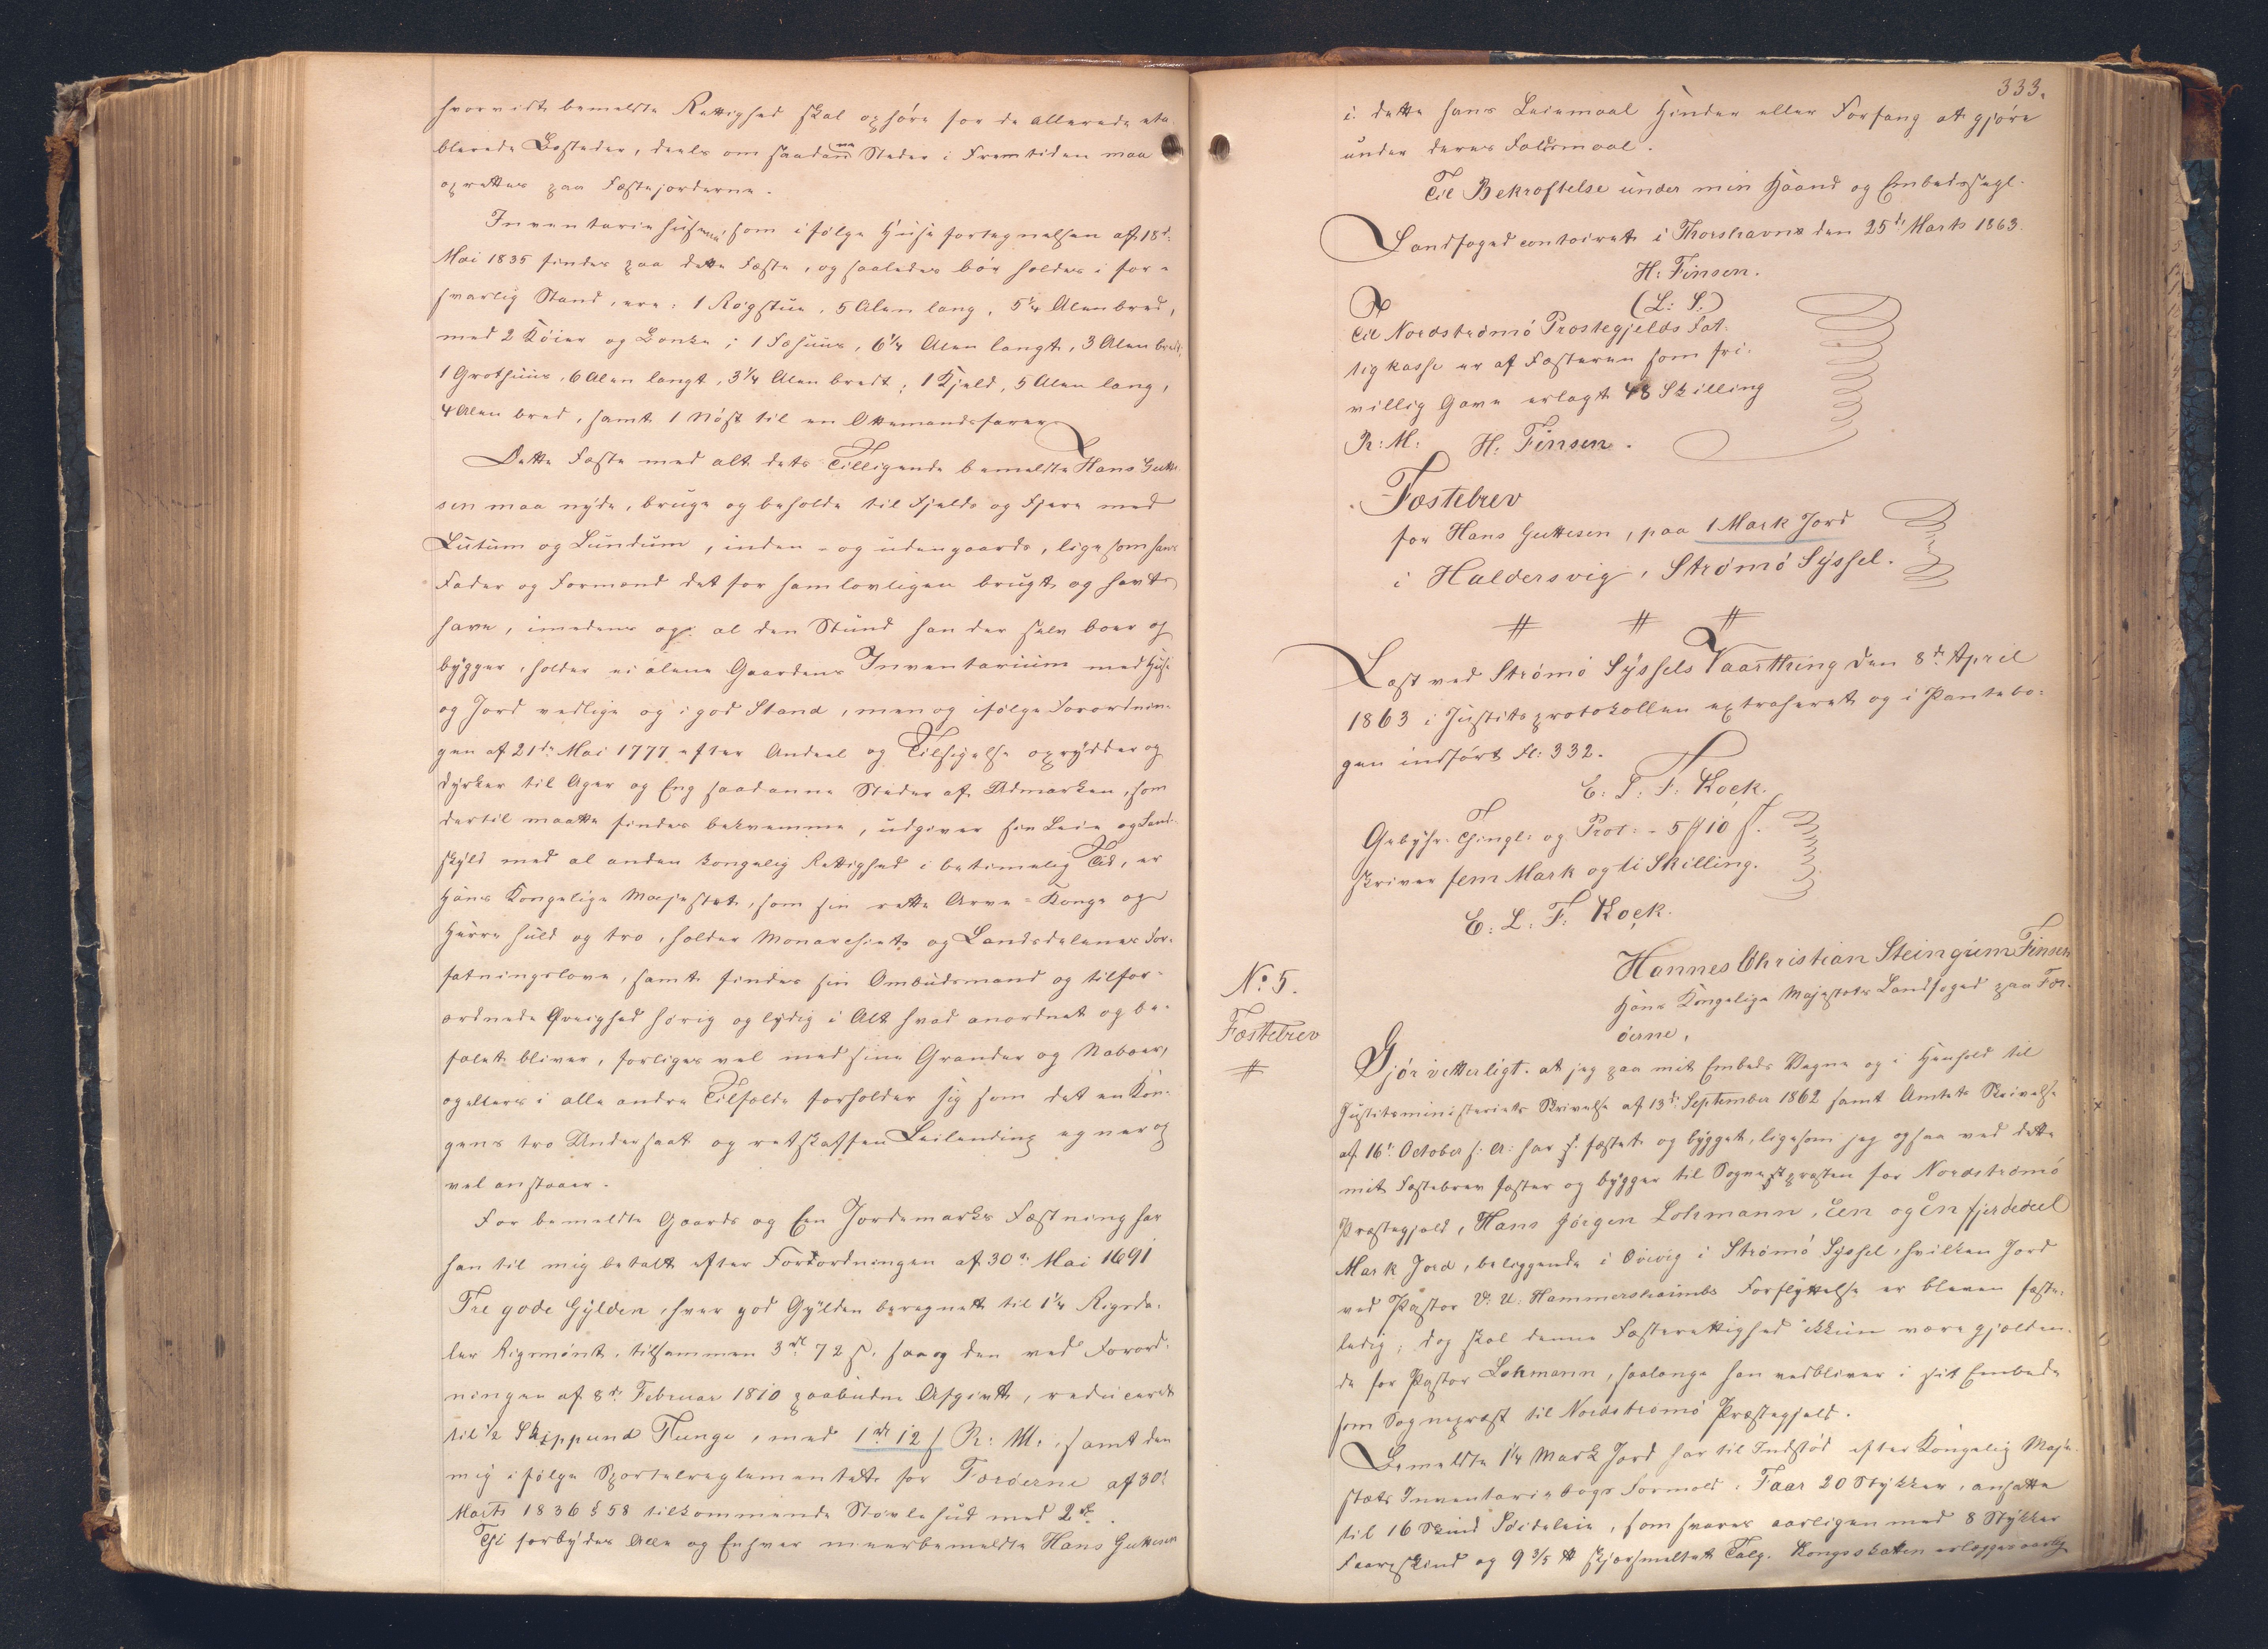 hvorvidt bemeldte Rettighed skal ophøre for de allerede eta-
blerede Bosteder, deels om saadanne Steder i Fremtiden maa
oprettes paa Fæstejorderne.
Inventariehusene, som ifølge Huusfortegnelsen af 18d:
Mai 1835 findes paa dette Fæste, og saaledes bør holdes i for-
svarlig Stand, ere: 1 Røgstue, 5 Alen lang, 5¼ Alen bred,
med 2 Køier og Bænke; 1 Fæhuus, 6¼ Alen langt, 3 Alen bredt;
1 Grothuus, 6 Alen langt, 3¼ Alen bredt; 1 Kjeld, 5 Alen lang,
4 Alen bred, samt 1 Nøst til en Ottemandsfarer
Dette Fæste med alt dets Tilliggende bemeldte Hans Gutte-
sen maa nyde, bruge og beholde til Fjelds og Fjære med
Lutum og Lundum, inden- og udengaards, ligesom hans
Fader og Formænd det før ham lovligen brugt og havt
have, imedens og al den Stund han der selv boer og
bygger, holder ei alene Gaardens Inventarium med Huse
og Jord vedlige og i god Stand, men og ifølge Forordnin-
gen af 21de Mai 1777 efter Andeel og Tilsigelse oprydder og
dyrker til Ager og Eng saadanne Steder af Udmarken, som
dertil maatte findes bekvemme, udgiver sin Leie og Land-
skyld med al anden kongelig Rettighed i betimelig Tid, er
Hans Kongelige Majestæt, som sin rette Arve-Konge og
Herre huld og tro, holder Monarchiets og Landsdelenes For-
fatningslove, samt findes sin Ombudsmand og tilfor-
ordnede Øvrighed hørig og lydig i Alt hvad anordnet og be-
falet bliver, forliges vel med sine Grander og Naboer,
og ellers i alle andre Tilfælde forholder sig som det en Kon-
gens tro Undersaat og retskaffen Leilending egner og
vel anstaaer.
For bemeldte Gaards og Een Jordemarks Fæstning har
han til mig betalt efter Forordningen af 30te Mai 1691
Tre gode Gylden, hver god Gylden beregnet til 1¼ Rigsda-
ler Rigsmønt, tilsammen 3rd 72 s, saa og den ved Forord-
ningen af 8de Februar 1810 paabudne Afgivt, reduceret
til ½ Skippund Tunge, med 1rd 12 s R: M:, samt den
mig ifølge Sportelreglementet for Færøerne af 30t
Marts 1836 § 58 tilkommende Støvlehud med 2rd.
Thi forbydes Alle og Enhver meerbemeldte Hans Guttesen
333.
i dette hans Leiemaal Hinder eller Forfang at gjøre
under deres Faldsmaal.
Til Bekræftelse under min Haand og Embedssegl.
Landfogedcontoiret i Thorshavn den 25d: Marts 1863.
H: Finsen.
(L: S:)
Til Nordstrømø Præstegjelds Fat-
tigkasse er af Fæsteren som fri-
villig Gave erlagt 48 Skilling
R: M: H: Finsen.
Fæstebrev
for Hans Guttesen, paa 1 Mark Jord
i Haldersvig, Strømø Syssel.
# # #
Læst ved Strømø Syssels Vaarthing den 8d: April
1863 i Justitsprotokollen extraheret og i Pantebo-
gen indført fl: 332.
E: L: F: Kock.
Gebyhr. Thingl: og Prot: - 5 # 10 s.
skriver fem Mark og ti Skilling.
E: L: F: Kock.
No: 5.
Fæstebrev
#
Hannes Christian Steingrim Finsen
Hans Kongelige Majestæts Landfoged paa Fær-
øerne,
Gjør vitterligt: at jeg paa mit Embeds Vegne og i Henhold til
Justitsministeriets Skrivelse af 13d: September 1862 samt Amtets Skrivelse
af 16t: October s: A: har fæstet og bygget, ligesom jeg ogsaa ved dette
mit Fæstebrev fæster og bygger til Sognepræsten for Nordstrømø
Præstegjeld, Hans Jørgen Lohmann, Een og En fjerdedeel
Mark Jord, beliggende i Qvivig i Strømø Syssel, hvilken Jord
ved Pastor V: U: Hammershaimbs Forflyttelse er bleven fæste-
ledig; dog skal denne Fæsterettighed ikkun være gjælden-
de for Pastor Lohmann, saalænge han vedbliver i sit Embede
som Sognepræst til Nordstrømø Præstegjeld.
Bemeldte 1¼ Mark Jord har til Indstød efter Kongelig Maje-
stæts Inventariebogs Formeld: Faar 20 Stykker, ansatte
til 16 Skind Søideleie, som svares aarligen med 8 Stykker
Faareskind og 9 3/5 ℔ skjærsmeltet Talg. Kongsskatten erlægges aarlig